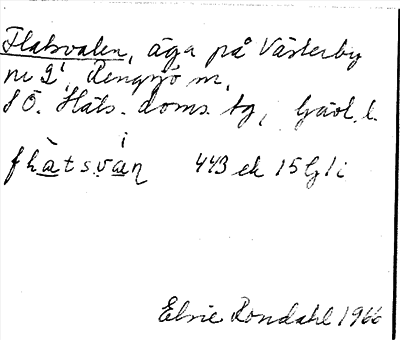 Flatsvalen, äga på Västerby
nr 2, Rengsjö sn,
SÖ. Häls. doms. tg, Gävl. l.
443 ek 15 Ig 1 i
Elsie Rondahl 1966